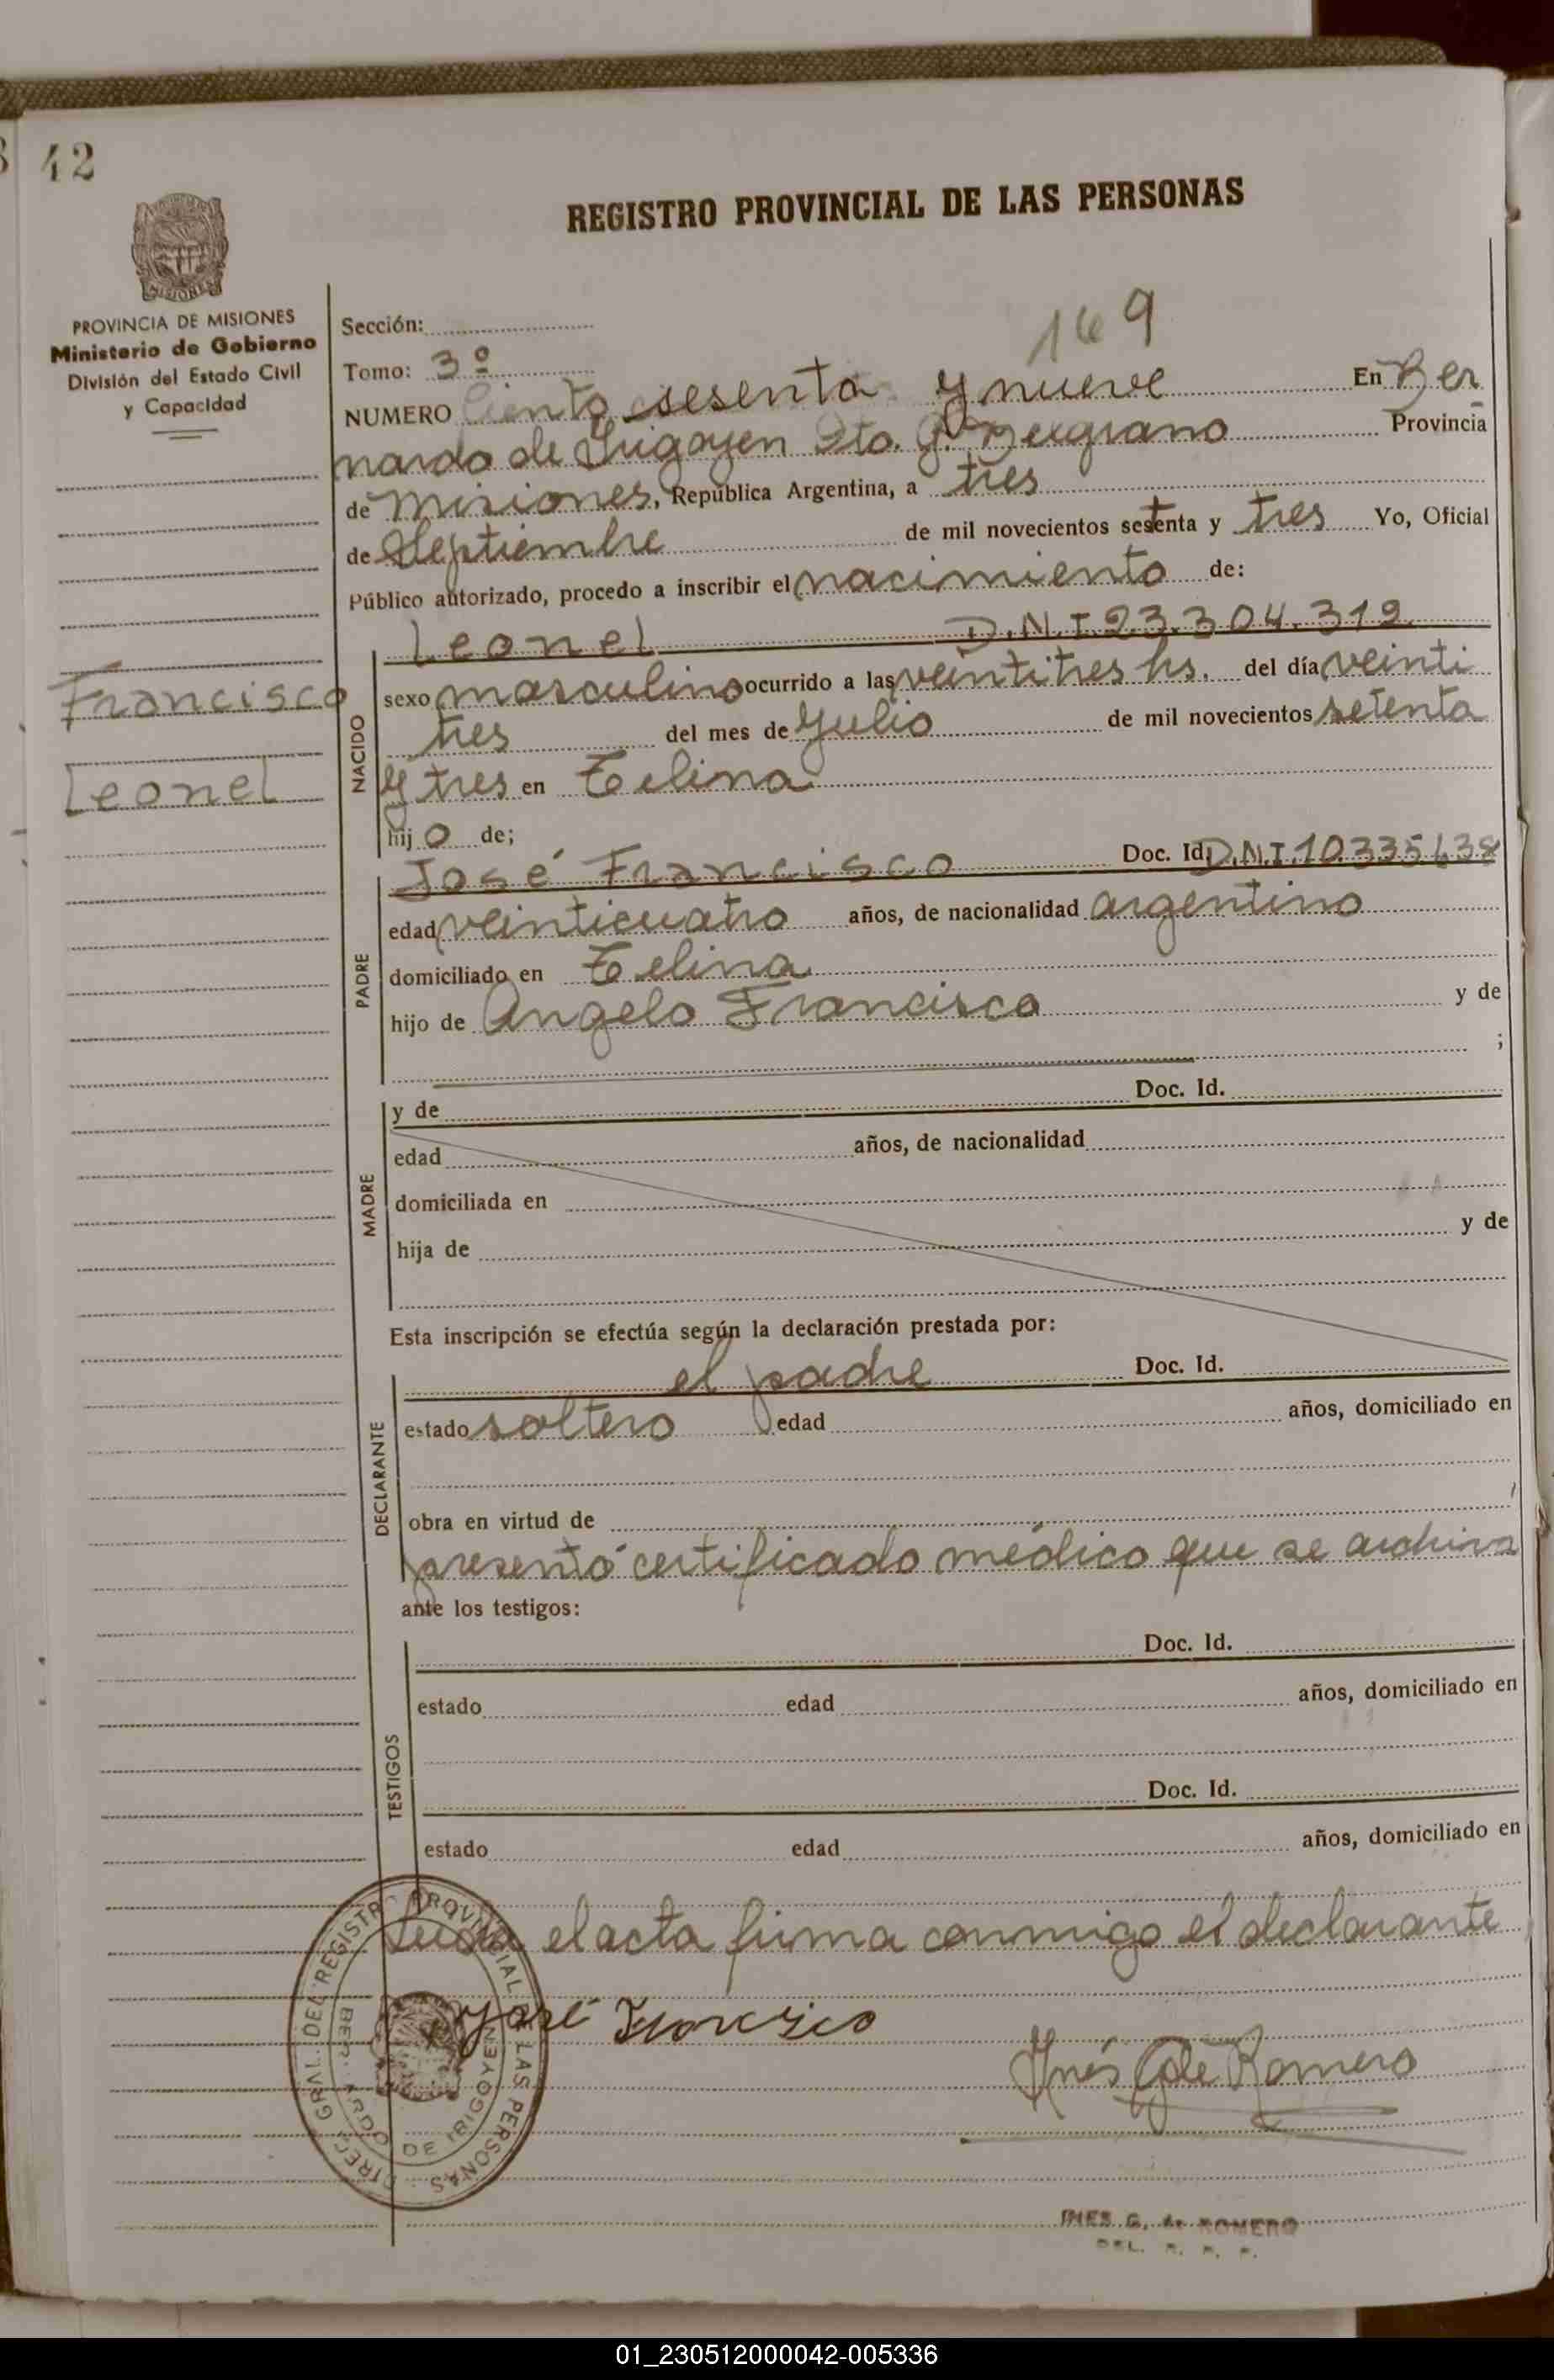 42
REGISTRO PROVINCIAL DE LAS PERSONAS
PROVINCIA DE MISIONES
Ministerio de Gobierno
División del Estado Civil
y Capacidad
Francisco
Leonel
Sección:
169
Tomo: 3º
NUMERO Ciento sesenta y nueve En Ber
nardo de Irigoyen Dto. G. Belgrano Provincia
de Misiones, República Argentina, a tres
de Septiembre de mil novecientos setenta y tres Yo, Oficial
Público autorizado, procedo a inscribir el nacimiento de:
Leonel D.N.I 23.304.319
NACIDO
sexo masculino ocurrido a las veintitres hs. del día veinti
tres del mes de Julio de mil novecientos setenta
y tres en Telina
hijo de;
José Francisco Doc. Id. D.N.I. 10.335638
PADRE
edad veinticuatro años, de nacionalidad argentino
domiciliado en Telina
hijo de Angelo Francisco y de
;
MADRE
y de Doc. Id.
edad años, de nacionalidad
domiciliada en
hija de y de
Esta inscripción se efectúa según la declaración prestada por:
DECLARANTE
el padre Doc. Id.
estado soltero edad años, domiciliado en
obra en virtud de
presentó certificado médico que se archiva
ante los testigos:
TESTIGOS
Doc. Id.
estado edad años, domiciliado en
Doc. Id.
estado edad años, domiciliado en
Leida el acta firma conmigo el declarante
José Francisco
Inés G de Romero
DIREC. GRAL. DEL REGISTRO PROVINCIAL DE LAS PERSONAS
BERNARDO DE IRIGOYEN
INES G. de ROMERO
DEL. R. P. P.
01_230512000042-005336